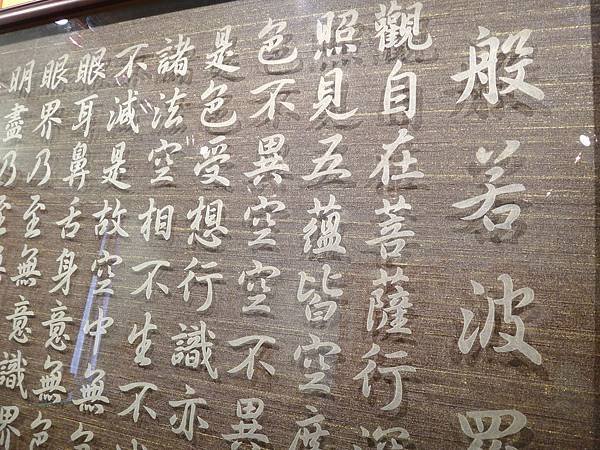 般若波羅
觀自在菩薩行深
照見五蘊皆空度
色不異空空不異
是色受想行識亦
諸法空相不生不
不減是故空中無
眼耳鼻舌身意無色
眼界乃至無意識界
明盡乃至無